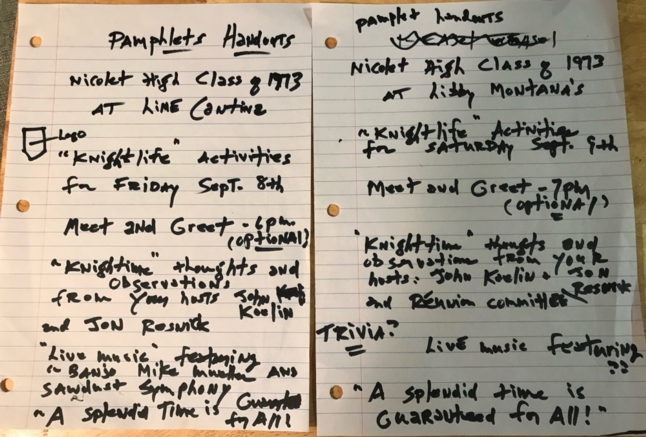 Pamphlets Handouts
Nicolet High Class of 1973
AT LiME Cantina
Logo
"Knightlife" Activities
for FRIDAY SepT. 8th
Meet and Greet - 6pm
(OPTIONAl)
"Knightime" thoughts and
observations
from your hosts John
Koelin
and JON Resnick
"Live music" featuring
~ BANJO Mike AND
SAWDUST SYMPHONY
"A splendid Time is
for All!
PAMPLET HANDOUTS
Nicolet High CLASS of 1973
AT Libby MONTANA'S
"Knightlife" Activities
for SATURDAY Sept. 9th
Meet and Greet - 7pm
(OPTIONAl)
"Knighttime" thoughts and
observation from your
hosts: John Koelin + JON
Resnick
and Reunion committee
TRIVIA?
LIVE music featuring
??
"A splendid time is
Guaranteed for All!"